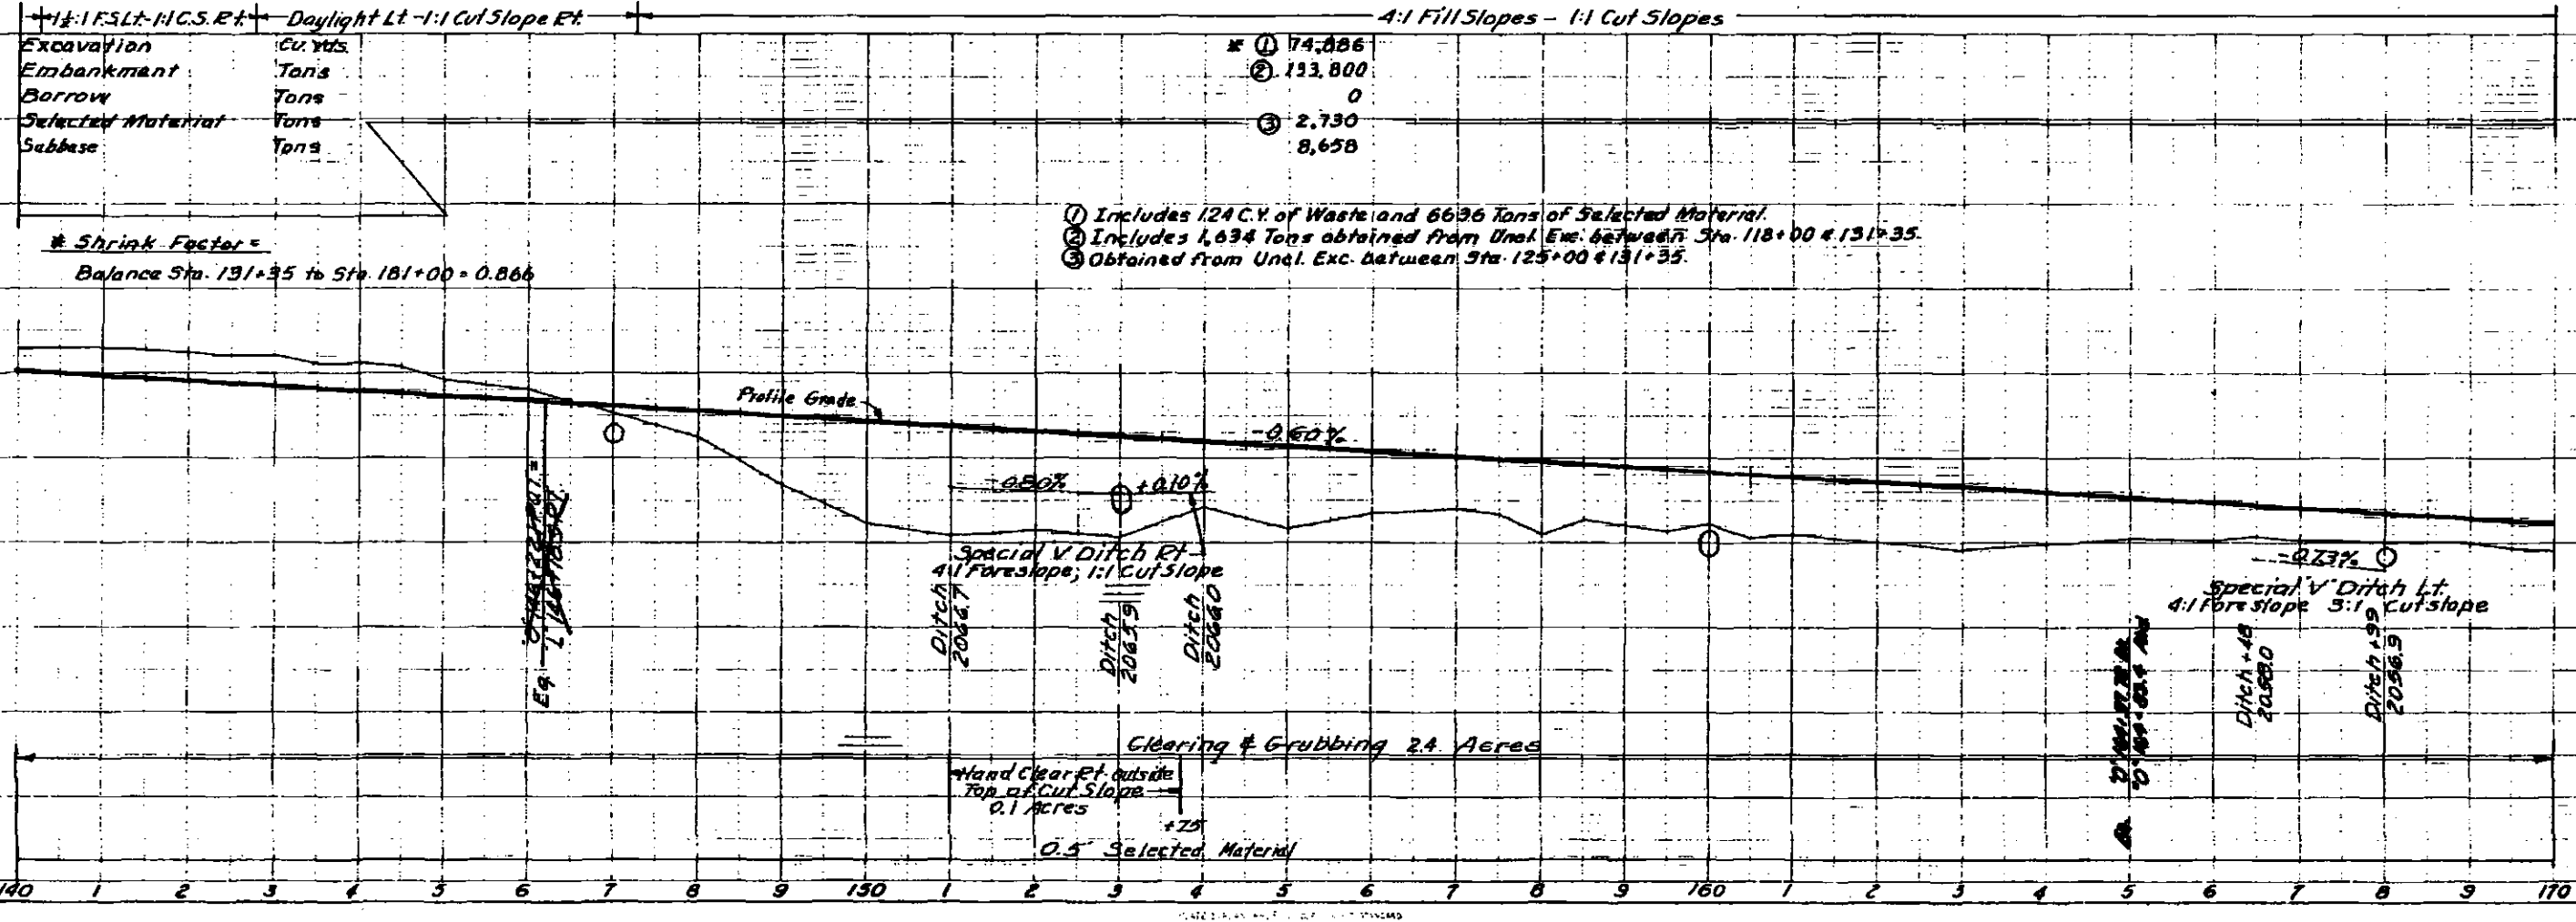 1½:1 F.S.Lt.-1:1 C.S. Rt. Daylight Lt.-1:1 Cut Slope Rt. 4:1 Fill Slopes - 1:1 Cut Slopes
Excavation Cu. Yds. * ① 74,886
Embankment Tons ② 133,800
Borrow Tons 0
Selected Material Tons ③ 2,730
Subbase Tons 8,658
① Includes 124 C.Y. of Waste and 6636 Tons of Selected Material.
② Includes 1,634 Tons obtained from Uncl. Exc. between Sta. 118+00 & 131+35.
③ Obtained from Uncl. Exc. between Sta. 125+00 & 131+35.
* Shrink Factor =
Balance Sta. 131+35 to Sta. 181+00 = 0.866
Profile Grade
-0.60%
-0.80% +0.10%
Special V Ditch Rt.
4:1 Foreslope; 1:1 Cut Slope
-0.73%
Special V Ditch Lt.
4:1 Foreslope 3:1 Cutslope
Eq.
Ditch
2066.7
Ditch
2065.9
Ditch
2066.0
Ditch +48
2058.0
Ditch +99
2056.9
Clearing & Grubbing 2.4 Acres
Hand Clear Rt. outside
Top of Cut Slope
0.1 Acres
+75
0.5' Selected Material
140 1 2 3 4 5 6 7 8 9 150 1 2 3 4 5 6 7 8 9 160 1 2 3 4 5 6 7 8 9 170